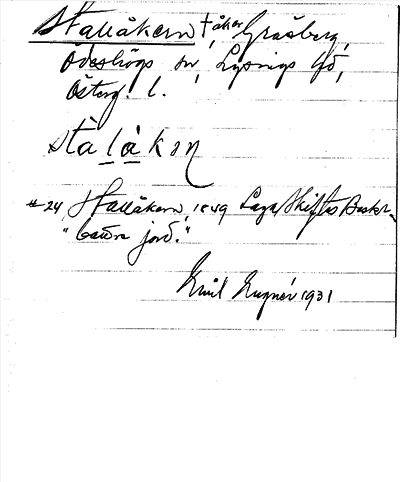 Stallåkern, † åker, Gråsberg,
Ödeshögs sn, Lysings hd,
Österg. l.
stàlåkɘn
#24, Stallåkern, 1849 Laga Skiftes Beskr.
"bättre jord."
Emil 1931